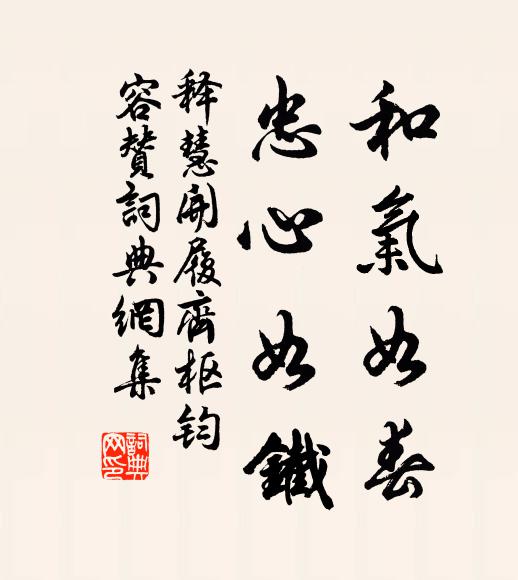 和氣如春
忠心如鐵
释慧開履齋枢鈞
容贊詞典網集
詞典
网印